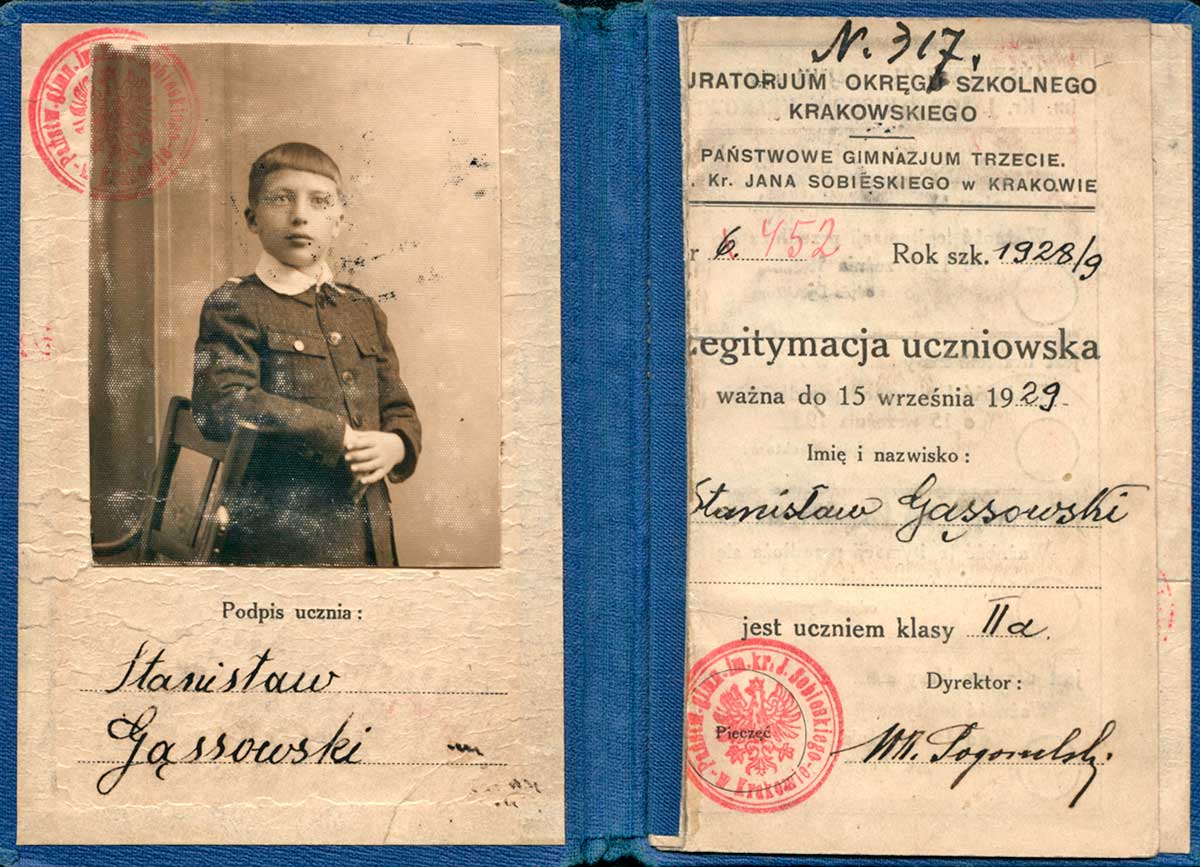 Podpis ucznia:
Stanisław
Gąssowski
N. 317.
URATORJUM OKRĘGU SZKOLNEGO
KRAKOWSKIEGO
PAŃSTWOWE GIMNAZJUM TRZECIE.
. Kr. JANA SOBIESKIEGO w KRAKOWIE
r 6. 452 Rok szk. 1928/9
Legitymacja uczniowska
ważna do 15 września 1929
Imię i nazwisko:
Stanisław Gąssowski
jest uczniem klasy IIa.
Dyrektor:
Pieczęć
Państw. gimn. im. kr. J. Sobieskiego w Krakowie